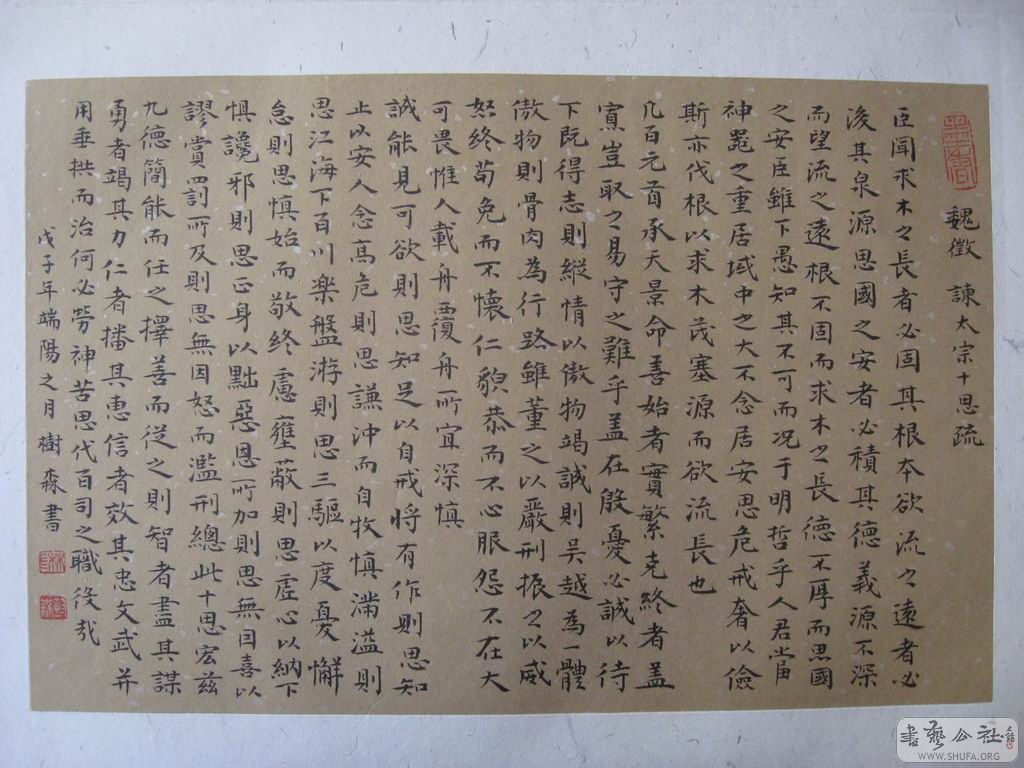 魏徵 諫太宗十思疏
臣聞求木之長者必固其根本欲流之遠者必
浚其泉源思國之安者必積其德義源不深
而望流之遠根不固而求木之長德不厚而思國
之安臣雖下愚知其不可而況于明哲乎人君當
神器之重居域中之大不念居安思危戒奢以儉
斯亦伐根以求木茂塞源而欲流長也
凡百元首承天景命善始者實繁克終者蓋
寡豈取之易守之難乎蓋在殷憂必誠以待
下既得志則縱情以傲物竭誠則吳越為一體
傲物則骨肉為行路雖董之以嚴刑振之以威
怒終苟免而不懷仁貌恭而不心服怨不在大
可畏惟人載舟覆舟所宜深慎
誠能見可欲則思知足以自戒將有作則思知
止以安人念高危則思謙沖而自牧慎滿溢則
思江海下百川樂盤游則思三驅以度憂懈
怠則思慎始而敬終慮壅蔽則思虛心以納下
懼讒邪則思正身以黜惡恩所加則思無因喜以
謬賞罰所及則思無因怒而濫刑總此十思宏茲
九德簡能而任之擇善而從之則智者盡其謀
勇者竭其力仁者播其惠信者效其忠文武并
用垂拱而治何必勞神苦思代百司之職役哉
戊子年端陽之月樹森書
書藝公社
WWW.SHUFA.ORG